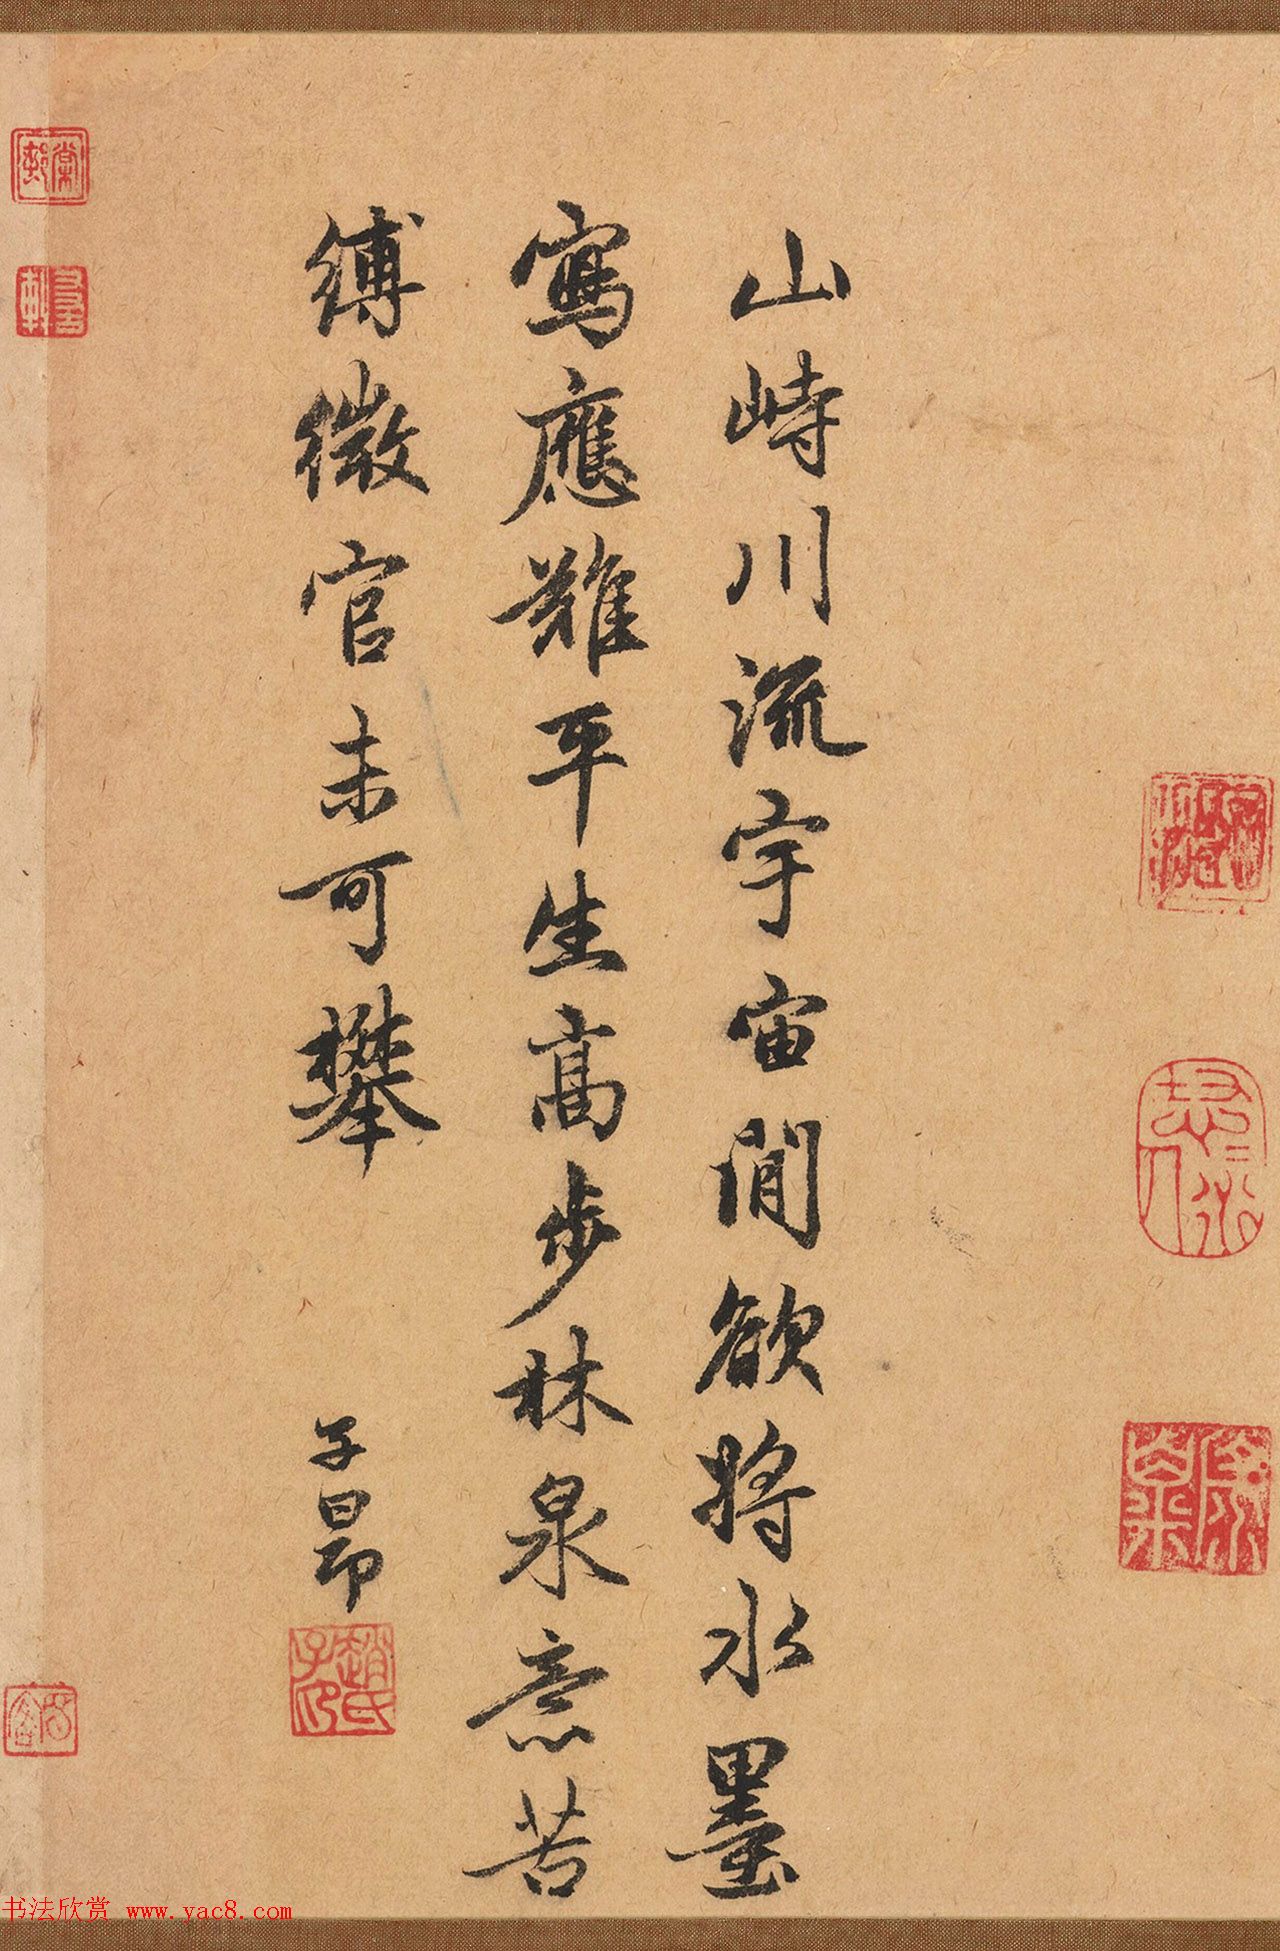 山峙川流宇宙間欲將水墨
寫應難平生高步林泉意苦
縛微官未可攀
子昂
趙氏子印
棠邨
书法欣赏 www.yac8.com